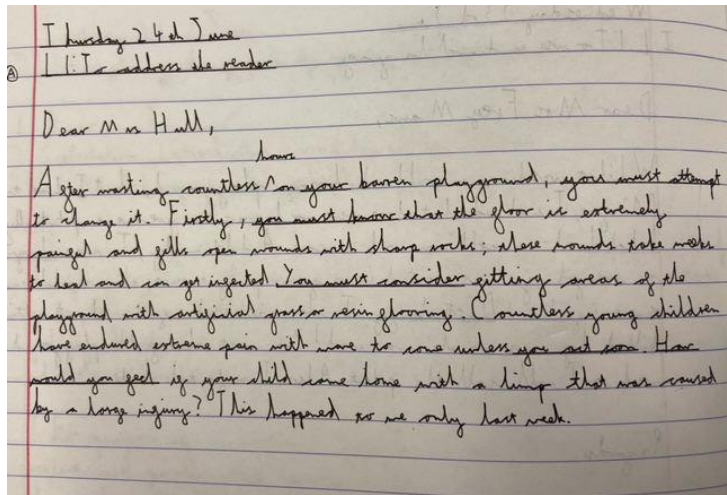 Thursday 24th June
A LI: To address the reader
Dear Mrs Hull,
hours
After wasting countless ^ on your barren playground, you must attempt
to change it. Firstly, you must know that the floor is extremely
painful and fills open wounds with sharp rocks; these wounds take weeks
to heal and can get infected. You must consider fitting areas of the
playground with artificial grass or resin flooring. Countless young children
have endured extreme pain with more to come unless you act soon. How
would you feel if your child came home with a limp that was caused
by a large injury? This happened to me only last week.